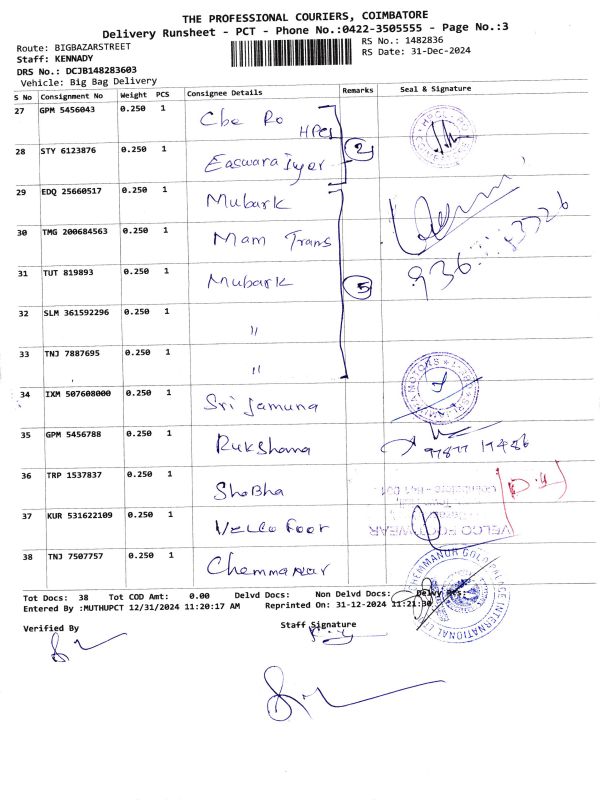 THE PROFESSIONAL COURIERS, COIMBATORE
Delivery Runsheet - PCT - Phone No.:0422-3505555 - Page No.:3
Route: BIGBAZARSTREET
RS No.: 1482836
Staff: KENNADY
RS Date: 31-Dec-2024
DRS No.: DCJB148283603
Vehicle: Big Bag Delivery
S No Consignment No Weight PCS Consignee Details Remarks Seal & Signature
27 GPM 5456043 0.250 1 Cbe Ro HPCL
28 STY 6123876 0.250 1 Easwara Iyer 2
29 EDQ 25660517 0.250 1 Mubark
30 TMG 200684563 0.250 1 Mam Trans
31 TUT 819893 0.250 1 Mubark 5
32 SLM 361592296 0.250 1 "
33 TNJ 7887695 0.250 1 "
34 IXM 507608000 0.250 1 Sri Jamuna
35 GPM 5456788 0.250 1 Rukshana
36 TRP 1537837 0.250 1 Shobha
37 KUR 531622109 0.250 1 Velco Foor
VELCO FOOTWEAR
38 TNJ 7507757 0.250 1 Chemmanur
CHEMMANUR GOLD PALACE INTERNATIONAL
Tot Docs: 38 Tot COD Amt: 0.00 Delvd Docs: Non Delvd Docs: Delvy Pts:
Entered By :MUTHUPCT 12/31/2024 11:20:17 AM Reprinted On: 31-12-2024 11:21:30
Verified By
Staff Signature